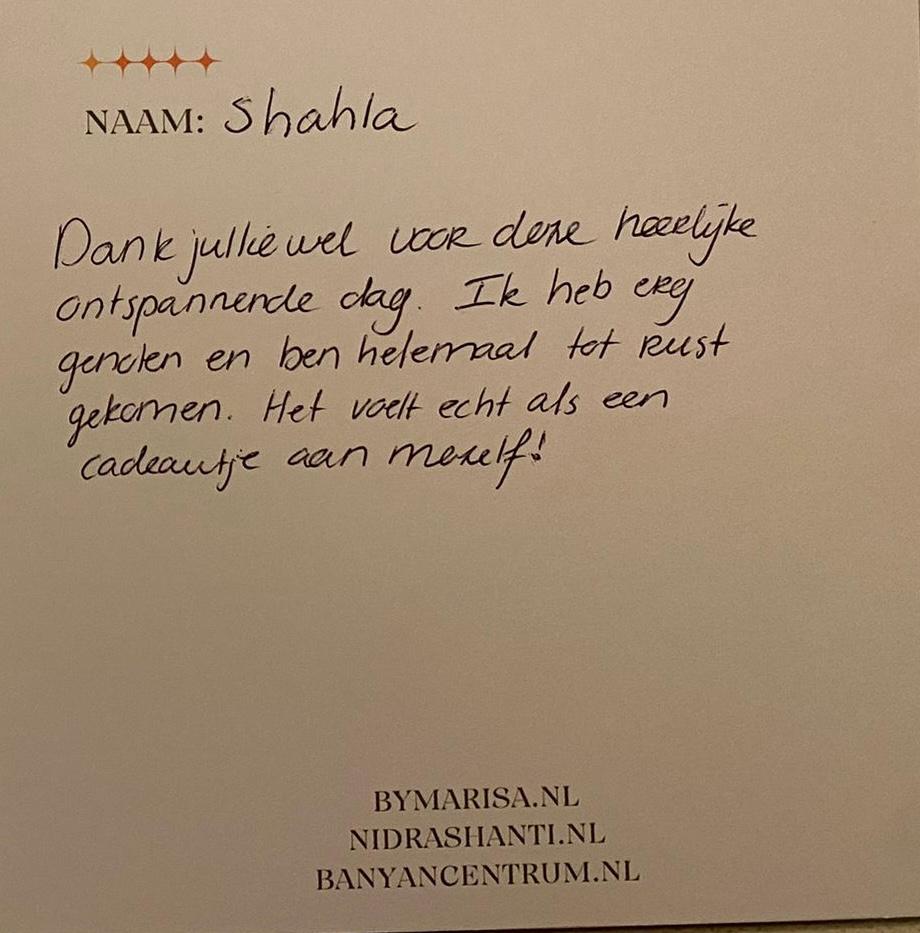 NAAM: Shahla
Dank jullie wel voor deze heerlijke
ontspannende dag. Ik heb erg
genoten en ben helemaal tot rust
gekomen. Het voelt echt als een
cadeautje aan mezelf!
BYMARISA.NL
NIDRASHANTI.NL
BANYANCENTRUM.NL